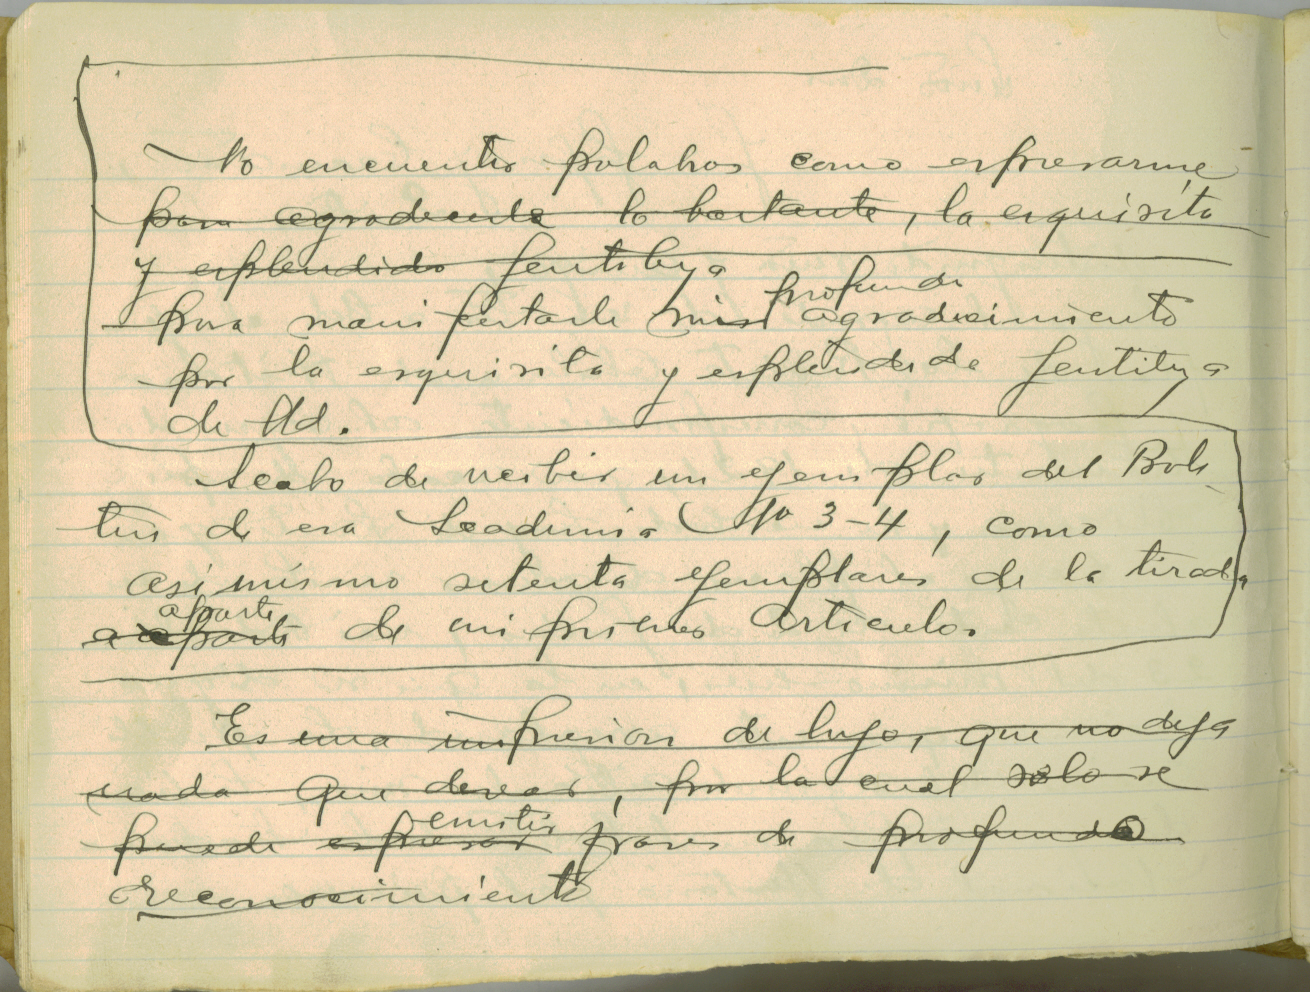 No encuentro palabras como expresarme
para agradecerle lo bastante, la exquisita
y esplendida gentileza
profundo
para manifestarle mis agradecimiento
por la exquisita y esplendida gentileza
de Ud.
Acabo de recibir un ejemplar del Bole-
tin de esa Academia No 3-4, como
asi mismo setenta ejemplares de la tirada
aparte
aparte de mi primer articulo.
Es una impresion de lujo, que no deja
nada que desear, por la cual solo se
emitir
puede expresar frases de profundo
reconocimiento